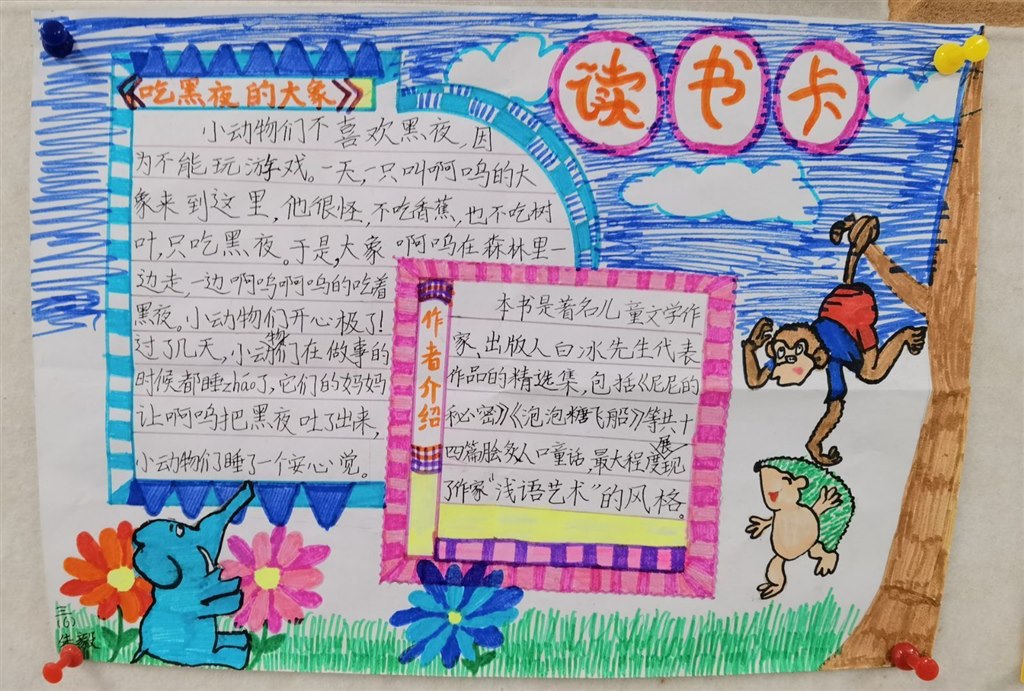 读书卡
《吃黑夜的大象》
小动物们不喜欢黑夜,因
为不能玩游戏。一天,一只叫啊呜的大
象来到这里,他很怪,不吃香蕉、也不吃树
叶,只吃黑夜。于是,大象啊呜在森林里一
边走,一边啊呜啊呜的吃着
黑夜。小动物们开心极了!
过了几天,小动物们在做事的
时候都睡zháo了,它们的妈妈
让啊呜把黑夜吐了出来,
小动物们睡了一个安心觉。
作者介绍
本书是著名儿童文学作
家、出版人白冰先生代表
作品的精选集,包括《尼尼的
秘密》《泡泡糖飞船》等共十
四篇脍炙人口童话,最大程度展现
了作家"浅语艺术"的风格。